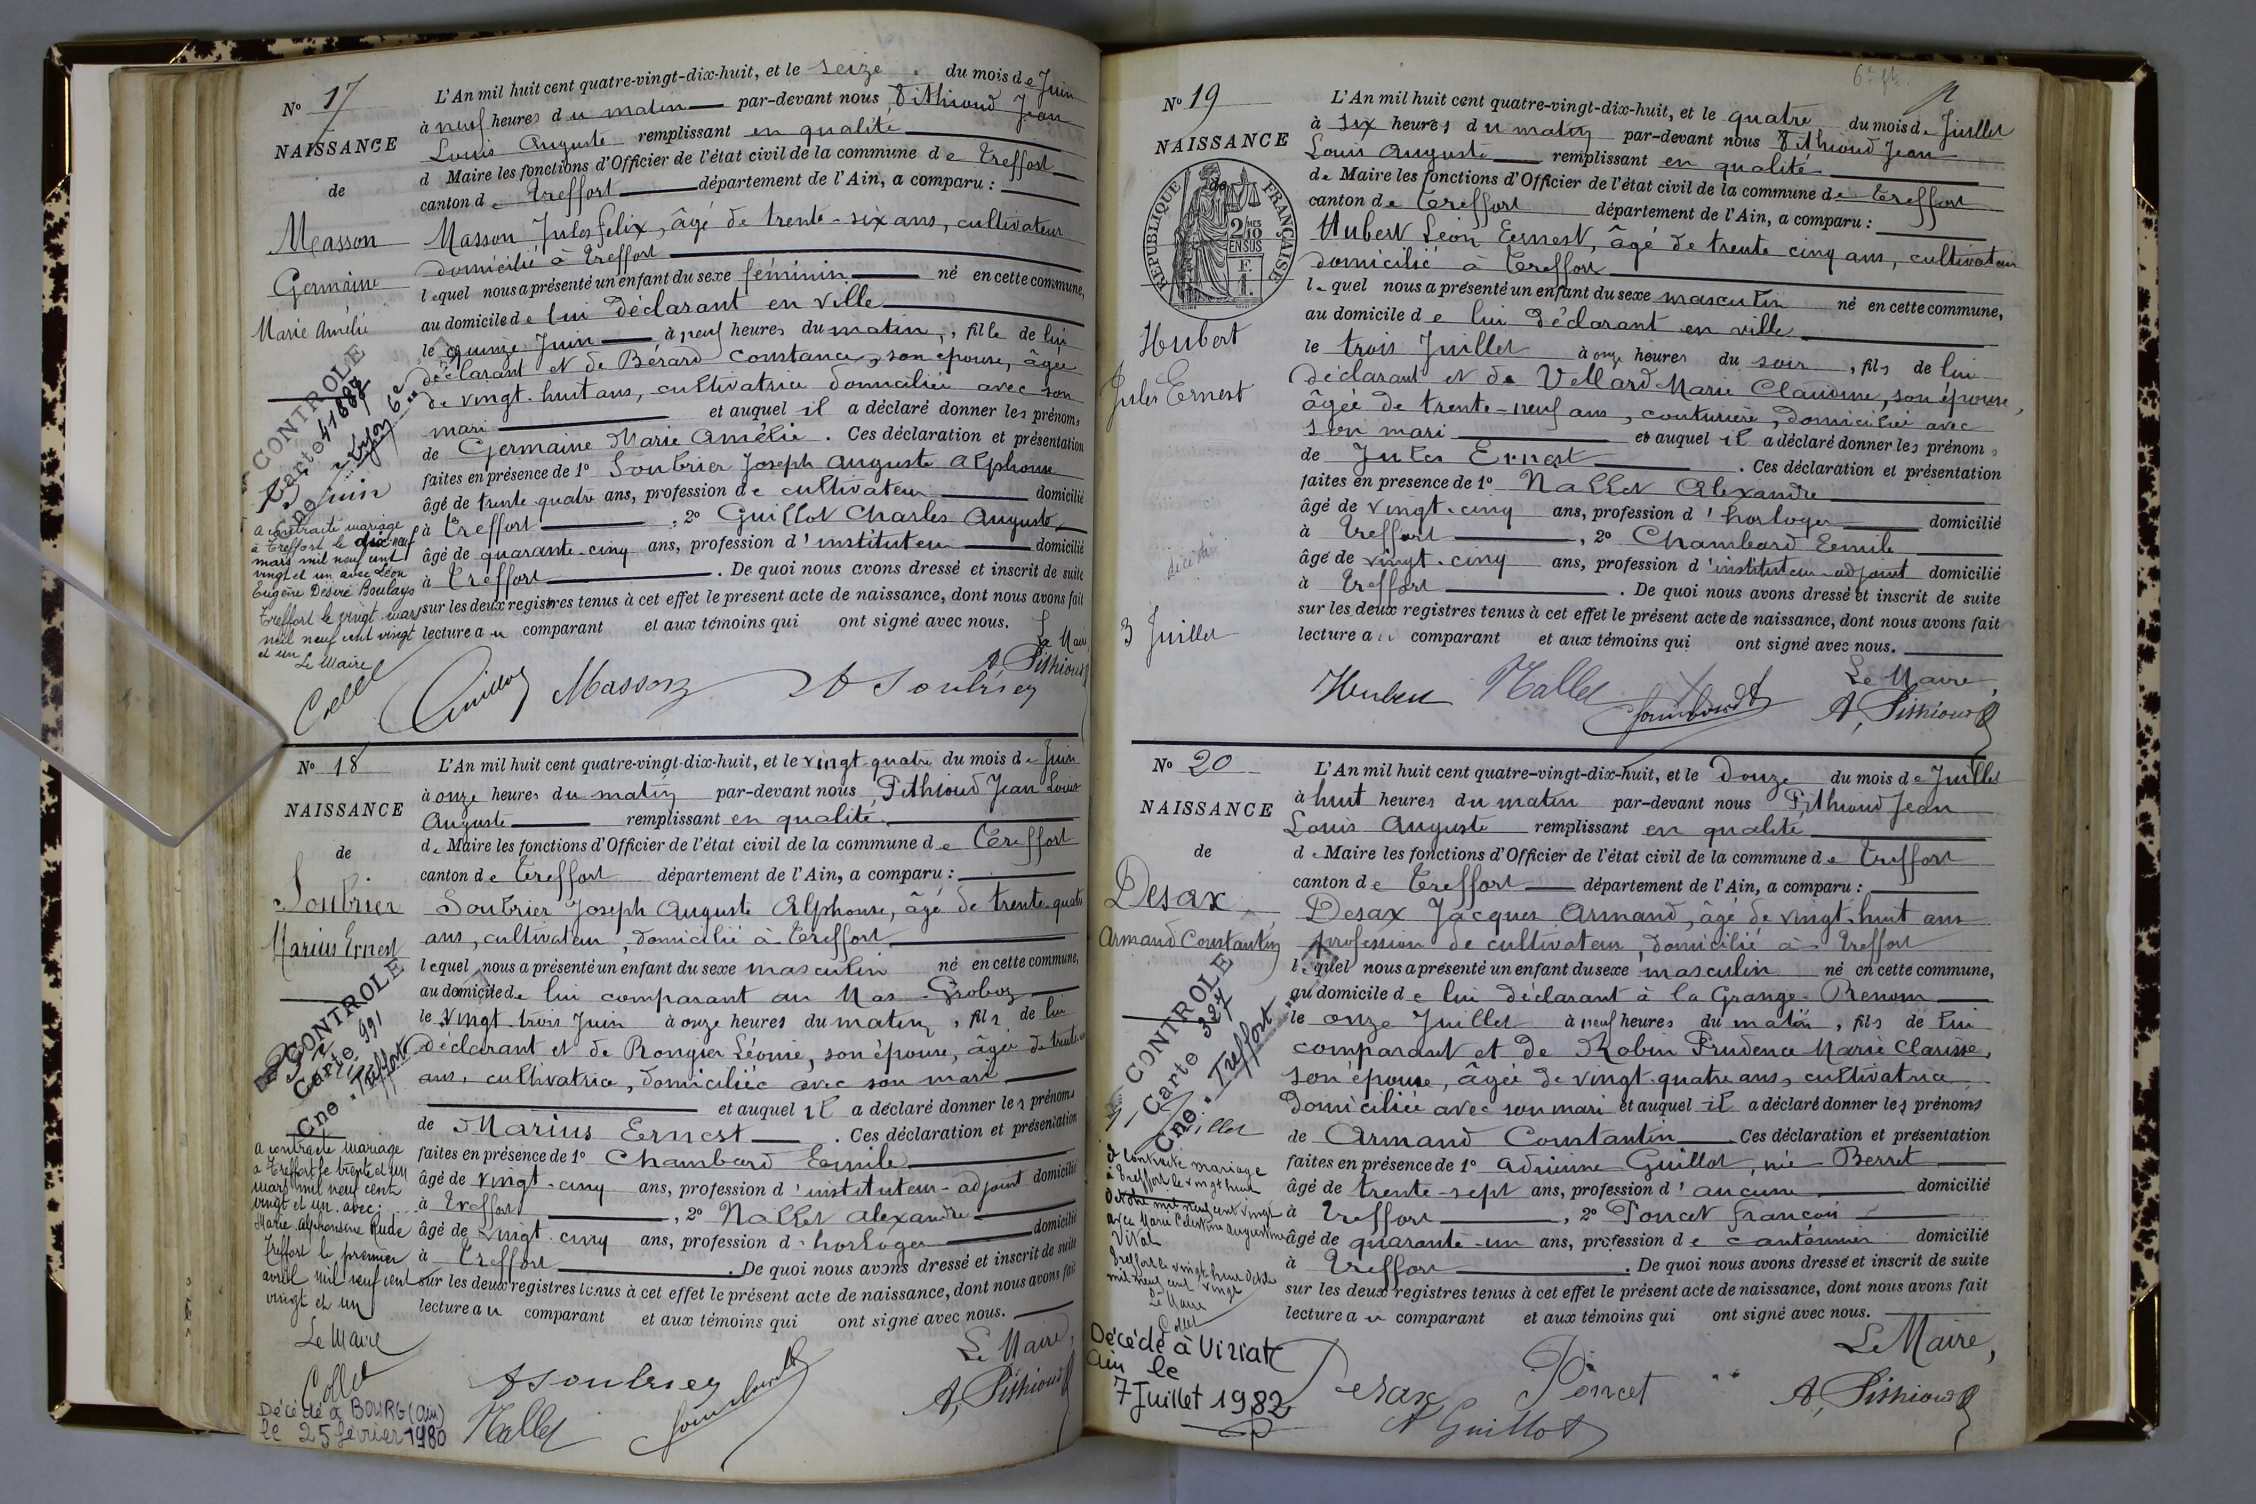 N° 17
NAISSANCE
de
Masson
Germaine
Marie Amélie
CONTROLE
Carte 41687
Cne Lyon 6e
15 Juin
a contracté mariage
à Treffort le dix-neuf
mars mil neuf cent
vingt et un avec Léon
Eugène Désiré Boulays
Treffort le vingt mars
mil neuf cent vingt
et un
Le Maire
Collet
L'An mil huit cent quatre-vingt-dix-huit, et le seize du mois de Juin
à neuf heures du matin par-devant nous Pithioud Jean
Louis Auguste remplissant en qualité
d Maire les fonctions d'Officier de l'état civil de la commune de Treffort
canton de Treffort département de l'Ain, a comparu :
Masson Jules Felix, âgé de trente-six ans, cultivateur
domicilié à Treffort
lequel nous a présenté un enfant du sexe féminin né en cette commune,
au domicile de lui déclarant en ville
le quinze Juin à neuf heures du matin, fille de lui
déclarant et de Bérard Constance, son épouse, âgée
de vingt-huit ans, cultivatrice domiciliée avec son
mari et auquel il a déclaré donner les prénoms
de Germaine Marie Amélie. Ces déclaration et présentation
faites en présence de 1° Soubrier Joseph Auguste Alphonse
âgé de trente quatre ans, profession de cultivateur domicilié
à Treffort, 2° Guillot Charles Auguste
âgé de quarante-cinq ans, profession d'instituteur domicilié
à Treffort. De quoi nous avons dressé et inscrit de suite
sur les deux registres tenus à cet effet le présent acte de naissance, dont nous avons fait
lecture au comparant et aux témoins qui ont signé avec nous.
Le Maire
Guillot Masson A Soubrier A. Pithioud
N° 18
NAISSANCE
de
Soubrier
Marius Ernest
CONTROLE
Carte 991
Cne Treffort
a contracté mariage
à Treffort le trente et un
mars mil neuf cent
vingt et un avec
Marie Alphonsine Rude
Treffort le premier
avril mil neuf cent
vingt et un
Le Maire
Collet
Décédé à BOURG (Ain)
le 25 février 1980
L'An mil huit cent quatre-vingt-dix-huit, et le vingt-quatre du mois de Juin
à onze heures du matin par-devant nous Pithioud Jean Louis
Auguste remplissant en qualité
de Maire les fonctions d'Officier de l'état civil de la commune de Treffort
canton de Treffort département de l'Ain, a comparu :
Soubrier Joseph Auguste Alphonse, âgé de trente-quatre
ans, cultivateur, domicilié à Treffort
lequel nous a présenté un enfant du sexe masculin né en cette commune,
au domicile de lui comparant au Mas-Groboz
le vingt-trois Juin à onze heures du matin, fils de lui
déclarant et de Rongier Léonie, son épouse, âgée de trente
ans, cultivatrice, domiciliée avec son mari
et auquel il a déclaré donner les prénoms
de Marius Ernest. Ces déclaration et présentation
faites en présence de 1° Chambard Emile
âgé de vingt-cinq ans, profession d'instituteur-adjoint domicilié
à Treffort, 2° Nallet Alexandre
âgé de vingt-cinq ans, profession d'horloger domicilié
à Treffort. De quoi nous avons dressé et inscrit de suite
sur les deux registres tenus à cet effet le présent acte de naissance, dont nous avons fait
lecture au comparant et aux témoins qui ont signé avec nous.
Le Maire,
A Soubrier A. Pithioud
Nallet Chambard
N° 19
NAISSANCE
de
REPUBLIQUE FRANÇAISE
2/10 EN SUS
F. 1.
Hubert
Jules Ernest
décédé
3 Juillet
L'An mil huit cent quatre-vingt-dix-huit, et le quatre du mois de Juillet
à six heures du matin par-devant nous Pithioud Jean
Louis Auguste remplissant en qualité
de Maire les fonctions d'Officier de l'état civil de la commune de Treffort
canton de Treffort département de l'Ain, a comparu :
Hubert Léon Ernest, âgé de trente cinq ans, cultivateur
domicilié à Treffort
lequel nous a présenté un enfant du sexe masculin né en cette commune,
au domicile de lui déclarant en ville
le trois Juillet à onze heures du soir, fils de lui
déclarant et de Vellard Marie Claudine, son épouse,
âgée de trente-neuf ans, couturière, domiciliée avec
son mari et auquel il a déclaré donner les prénoms
de Jules Ernest. Ces déclaration et présentation
faites en présence de 1° Nallet Alexandre
âgé de vingt-cinq ans, profession d'horloger domicilié
à Treffort, 2° Chambard Emile
âgé de vingt-cinq ans, profession d'instituteur-adjoint domicilié
à Treffort. De quoi nous avons dressé et inscrit de suite
sur les deux registres tenus à cet effet le présent acte de naissance, dont nous avons fait
lecture au comparant et aux témoins qui ont signé avec nous.
Le Maire,
Hubert Nallet Chambard A. Pithioud
N° 20
NAISSANCE
de
Desax
Armand Constantin
CONTROLE
Carte 327
Cne Treffort
11 Juillet
a contracté mariage
à Treffort le vingt huit
octobre mil neuf cent vingt
avec Marie Célestine Augustine
Vital
Treffort le vingt huit octobre
mil neuf cent vingt
Le Maire
Collet
Décédé à Viriat
Ain le
7 Juillet 1982
L'An mil huit cent quatre-vingt-dix-huit, et le douze du mois de Juillet
à huit heures du matin par-devant nous Pithioud Jean
Louis Auguste remplissant en qualité
de Maire les fonctions d'Officier de l'état civil de la commune de Treffort
canton de Treffort département de l'Ain, a comparu :
Desax Jacques Armand, âgé de vingt-huit ans
profession de cultivateur, domicilié à Treffort
lequel nous a présenté un enfant du sexe masculin né en cette commune,
au domicile de lui déclarant à la Grange-Renom
le onze Juillet à neuf heures du matin, fils de lui
comparant et de Robin Prudence Marie Clarisse,
son épouse, âgée de vingt-quatre ans, cultivatrice
domiciliée avec son mari et auquel il a déclaré donner les prénoms
de Armand Constantin Ces déclaration et présentation
faites en présence de 1° Adrienne Guillot, née Berret
âgé de trente-sept ans, profession d'aucune domicilié
à Treffort, 2° Poncet François
âgé de quarante-un ans, profession de cantonnier domicilié
à Treffort. De quoi nous avons dressé et inscrit de suite
sur les deux registres tenus à cet effet le présent acte de naissance, dont nous avons fait
lecture au comparant et aux témoins qui ont signé avec nous.
Le Maire,
Desax Poncet A. Pithioud
A Guillot